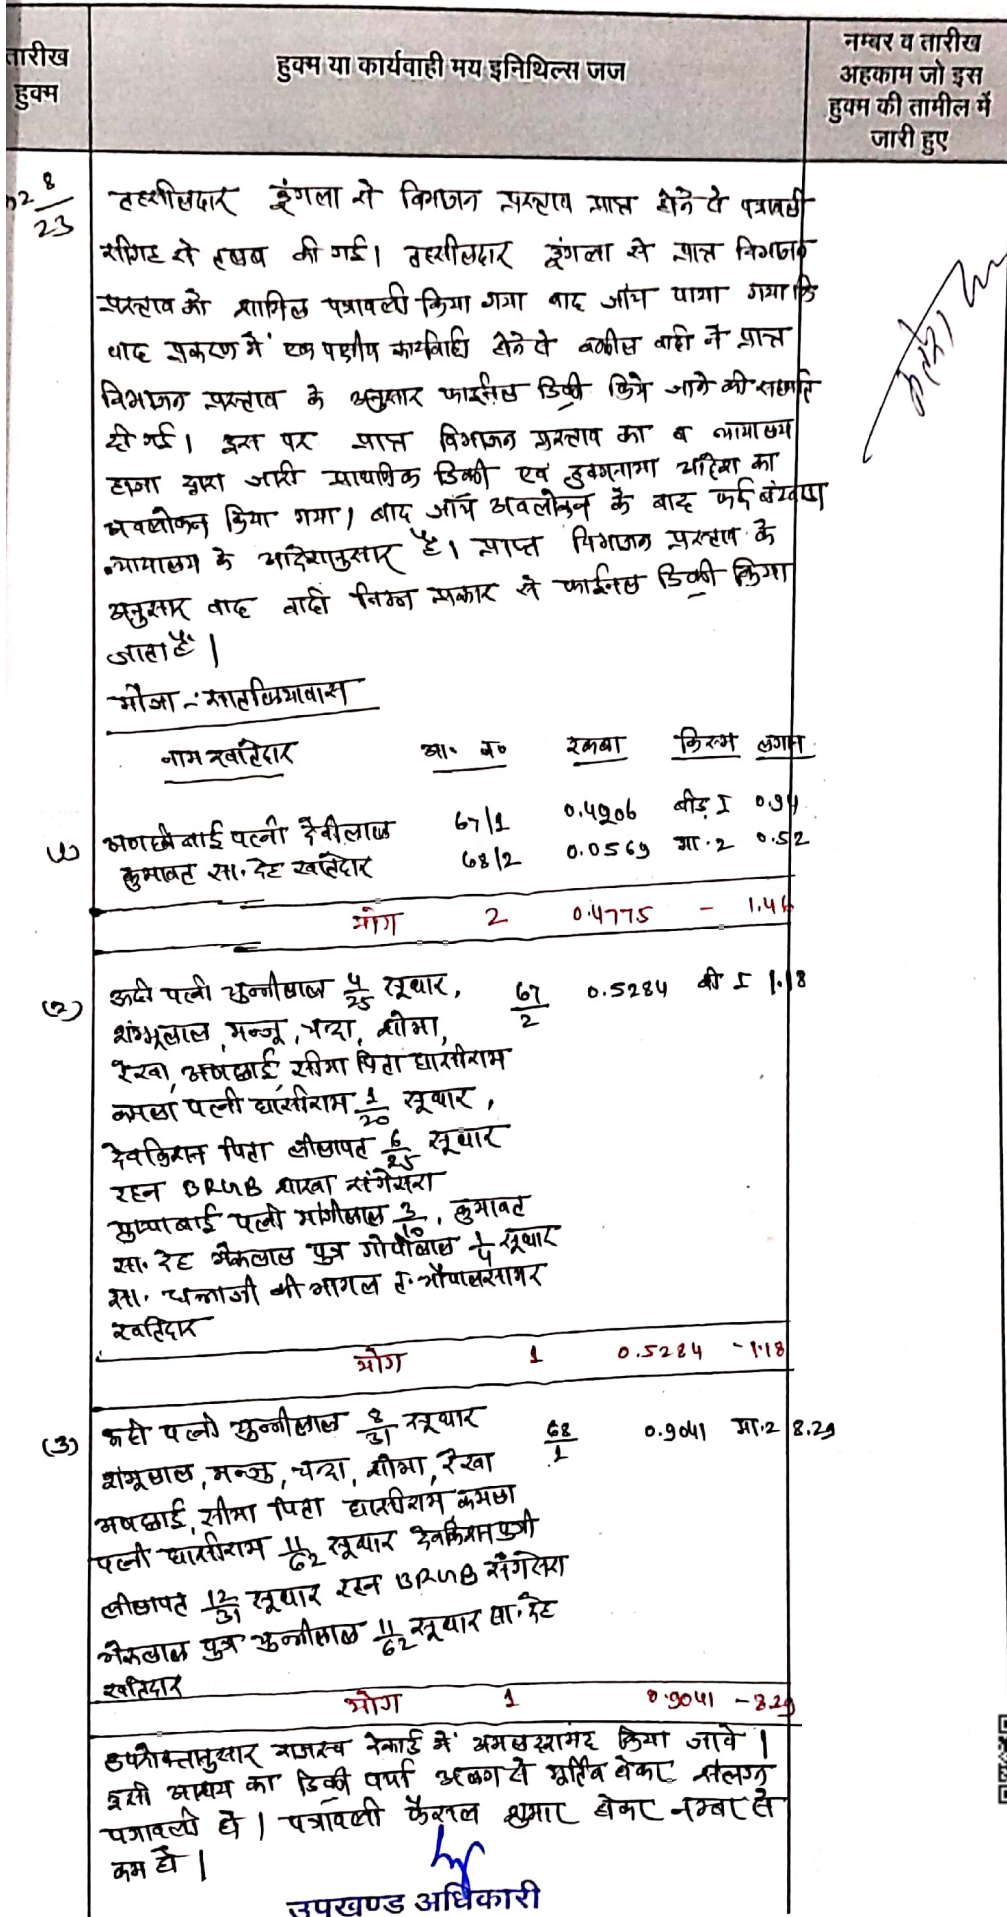 तारीख
हुक्म
हुक्म या कार्यवाही मय इनिथिल्स जज
नम्बर व तारीख
अहकाम जो इस
हुक्म की तामील में
जारी हुए
2 8/23
तहसीलदार डूंगला से विभाजन प्रस्ताव प्राप्त होने से पत्रावली
सीगह से तलब की गई। तहसीलदार डूंगला से प्राप्त विभाजन
प्रस्ताव को शामिल पत्रावली किया गया बाद जांच पाया गया कि
वाद प्रकरण में एक पक्षीय कार्यवाहि होने से वकील वादी ने प्राप्त
विभाजन प्रस्ताव के अनुसार फाईनल डिक्री किये जाने की सहमति
दी गई। इस पर प्राप्त विभाजन प्रस्ताव का व न्यायालय
हाजा द्वारा जारी प्राथमिक डिक्री एवं हुक्मनामा आदेश का
अवलोकन किया गया। बाद जाँच अवलोकन के बाद फर्द बंटवारा
न्यायालय के आदेशानुसार है। प्राप्त विभाजन प्रस्ताव के
अनुसार वाद वादी निम्न प्रकार से फाईनल डिक्री किया
जाता है।
मौजा :-
नाम खातेदार आ. न. रकबा किस्म लगान
(1) पत्नी देवीलाल 67/1 0.4206 बीड़ I 0.94
कुमावत सा. देह खातेदार 68/2 0.0569 मा.2 0.52
योग 2 0.4775 - 1.46
(2) पत्नी चुन्नीलाल 4/25 सूथार, 67/2 0.5284 बी I 1.18
शंम्भूलाल, मन्जू, चन्दा, शोभा,
रेखा, अणछाई, सीमा पिता घासीराम
कमला पत्नी घासीराम 1/20 सूथार,
देवकिशन पिता लीलापत 6/25 सूथार
रहन BRGB शाखा संगेसरा
पुष्पाबाई पत्नी मांगीलाल 3/10, कुमावत
सा. देह भैरूलाल पुत्र गोपीलाल 1/4 सूथार
सा. की भागल त. भोपालसागर
खातेदार
योग 1 0.5284 - 1.18
(3) पत्नी चुन्नीलाल 8/31 सूथार 68/1 0.9041 मा.2 8.29
शंभूलाल, मन्जु, चन्दा, शोभा, रेखा
अणछाई, सीमा पिता घासीराम, कमला
पत्नी घासीराम 11/62 सूथार देवकिशन
लीलापत 12/31 सूथार रहन BRGB संगेसरा
भैरूलाल पुत्र चुन्नीलाल 11/62 सूथार सा. देह
खातेदार
योग 1 0.9041 - 8.29
उपरोक्तानुसार राजस्व रेकार्ड में अमलदरामद किया जावे।
इसी आशय का डिक्री पर्चा अलग से मुर्तिब होकर संलग्न
पत्रावली हो। पत्रावली फैसल शुमार होकर नम्बर से
कम हो।
उपखण्ड अधिकारी